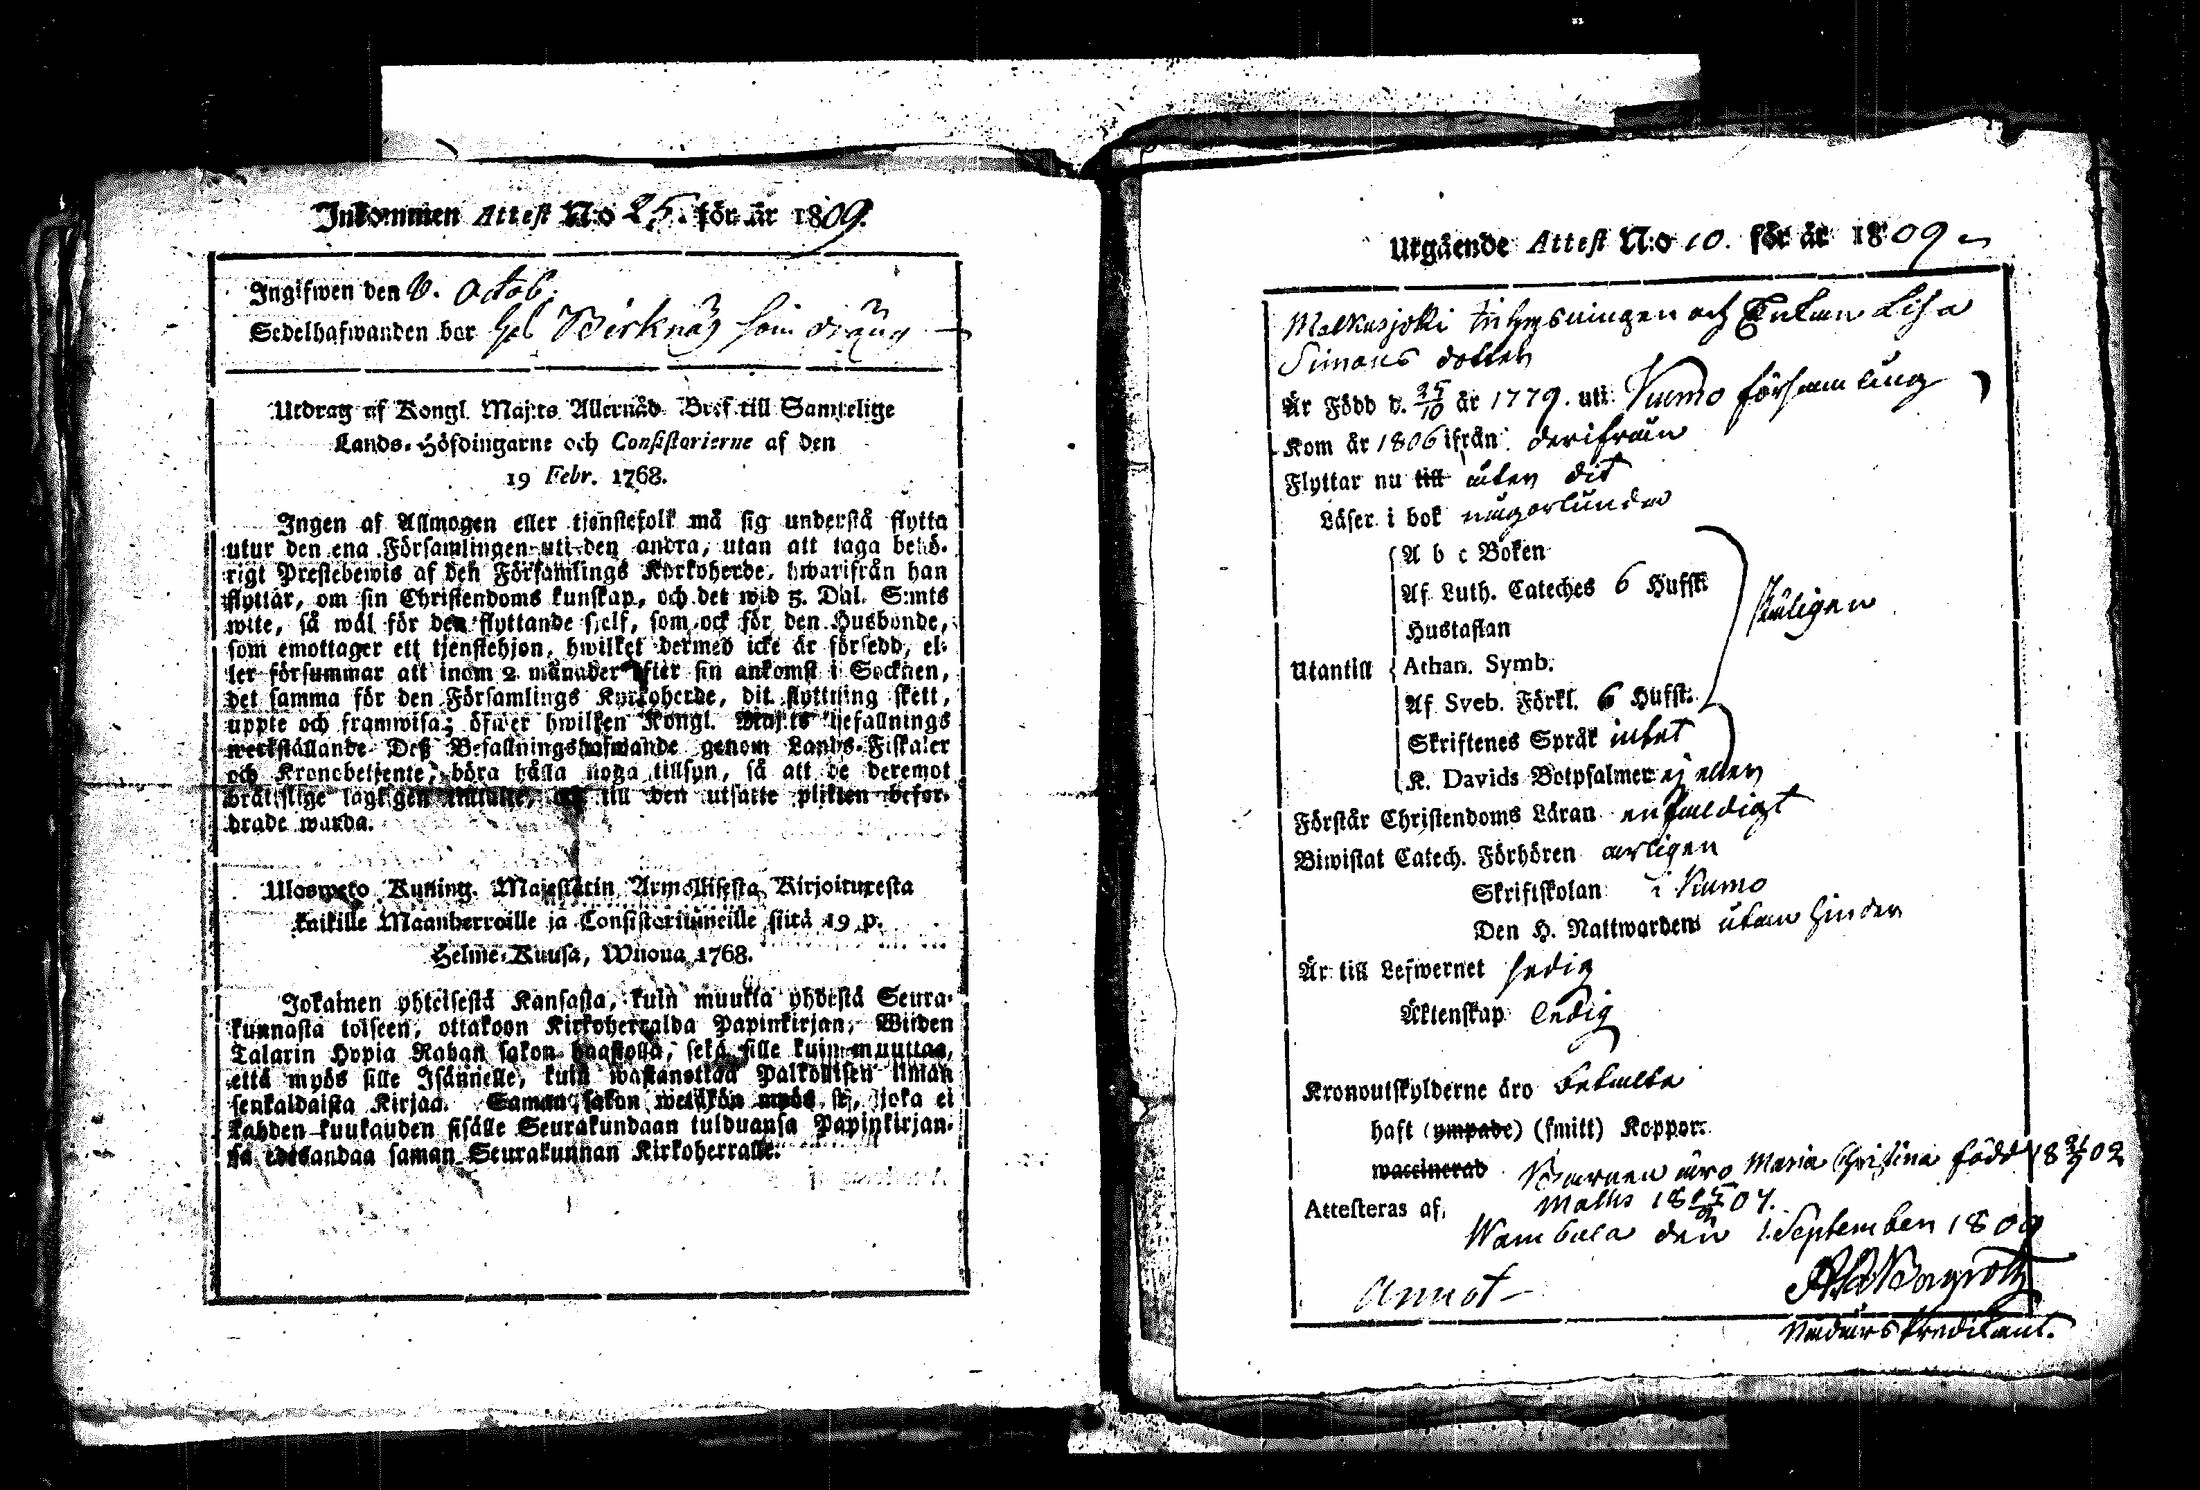 Inkommen Attest N:o 25. för år 1809.
Ingifwen den 8. Octob.
Sedelhafwanden bor hos Birknäs som dräng
Utdrag af Kongl. Maj:ts Allernåd. Bref till Samtelige
Lands-Höfdingarne och Consistorierne af den
19 Febr. 1768.
Ingen af Allmogen eller tjenstefolk må sig understå flytta
utur den ena Församlingen uti den andra, utan att taga behö-
rigt Prestebewis af den Församlings Kyrkoherde, hwarifrån han
flyttar, om sin Christendoms kunskap, och det wid 5. Dal. S:mts
wite, så wäl för den flyttande sjelf, som ock för den Husbonde,
som emottager ett tjenstehjon, hwilket dermed icke är försedd, el-
ler försummar att inom 2 månader efter sin ankomst i Socknen,
det samma för den Församlings Kyrkoherde, dit flyttning skett,
uppte och framwisa; öfwer hwilken Kongl. Maj:ts befallnings
werkställande Deß Befallningshafwande genom Lands-Fiskaler
och Kronobetjente, böra hålla noga tillsyn, så att de deremot
brätslige lagligen till den utsatte plikten befor-
drade warda.
Ulosweto Kuning. Majestetin Armollisesta Kirjoituxesta
kaikille Maanherroille ja Consistoriumeille siitä 19 p.
Helme-Kuusa, Wuona 1768.
Jokainen yhteisestä Kansasta, kuin muutta yhdestä Seura-
kunnasta toiseen, ottakoon Kirkoherralda Papinkirjan, Wiiden
Talarin Hopia Rahan sakon haastolla, sekä sille kuin muuttaa,
että myös sille Isännelle, kuin wastanottaa Palkollisen ilman
senkaldaista Kirjaa. Saman sakon wetäkön myös se, joka ei
kahden kuukauden sisälle Seurakundaan tulduansa Papinkirjan-
sa edesandaa saman Seurakunnan Kirkoherralle.
Utgående Attest N:o 10. för år 1809
Malkusjoki Inhysningen och Enkan Lisa
Simons dotter
Är Född d. 25/10 år 1779. uti Kumo församling
Kom år 1806 ifrån derifrån
Flyttar nu till åter dit
Läser i bok någorlunda
A b c Boken
Af Luth. Cateches 6 Hufst.
Hustaflan
Utantill Athan. Symb.
Af Sveb. Förkl. 6 Hufst.
Skriftenes Språk intet
K. Davids Botpsalmer ej eller
Förstår Christendoms Läran enfaldigt
Biwistat Catech. Förhören årligen
Skriftskolan i Kumo
Den H. Nattwarden utan hinder
Är till Lefwernet sedig
Äktenskap ledig
Kronoutskylderne äro betalte
haft (ympade) (smitt) Koppor.
waccinerad Barnen äro Maria Christina född 18 21/9 02
Attesteras af, Matts 18 04.
Wambula den 1. September 1809
Annot
Predikant.